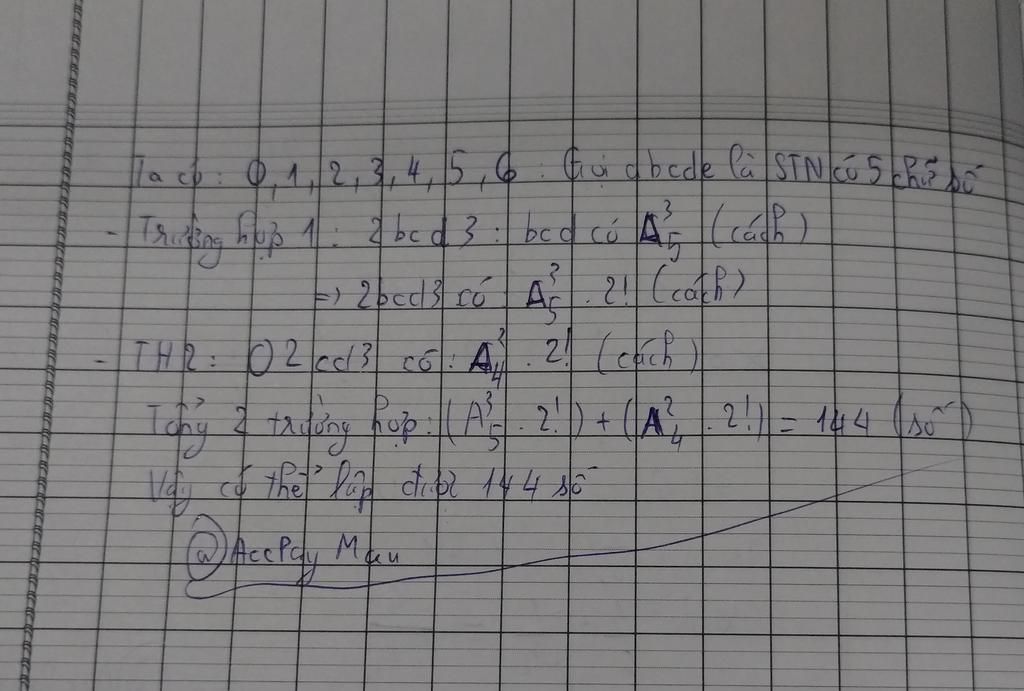 Ta có: 0, 1, 2, 3, 4, 5, 6: Gọi abcde là STN có 5 chữ số
- Trường hợp 1: 2bcd3: bcd có A³₅ (cách)
=> 2bcd3 có A³₅ . 2! (cách)
- TH2: 02cd3 có: A³₄ . 2! (cách)
Tổng 2 trường hợp: (A³₅ . 2!) + (A²₄ . 2!) = 144 (số)
Vậy có thể lập được 144 số
@AccPay Mau